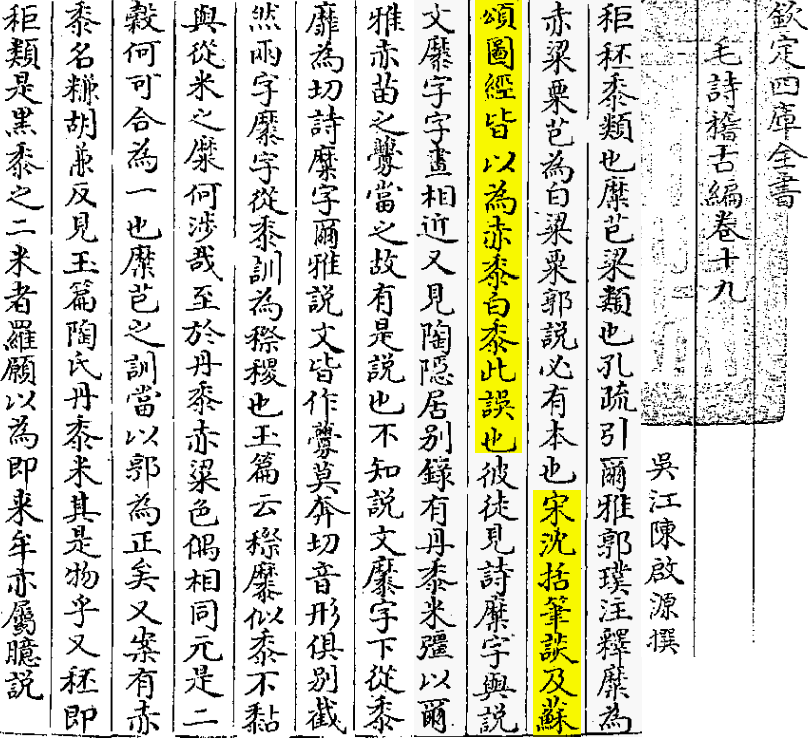 欽定四庫全書
毛詩稽古編卷十九
吳江陳啟源撰
秬秠黍類也穈芑粱類也孔疏引爾雅郭璞注釋穈為
赤粱粟芑為白粱粟郭說必有本也宋沈括筆談及蘇
頌圖經皆以為赤黍白黍此誤也彼徒見詩穈字與說
文穈字字畫相近又見陶隱居别錄有丹黍米彊以爾
雅赤苗之虋當之故有是說也不知說文穈字下從黍
靡為切詩穈字爾雅說文皆作虋莫奔切音形俱别截
然兩字穈字從黍訓為穄稷也玉篇云穄穈似黍不黏
與從米之糜何涉哉至於丹黍赤粱色偶相同元是二
穀何可合為一也穈芑之訓當以郭為正矣又案有赤
黍名䊠胡兼反見玉篇陶氏丹黍米其是物乎又秠即
秬類是黑黍之二米者羅願以為即来牟亦屬臆說